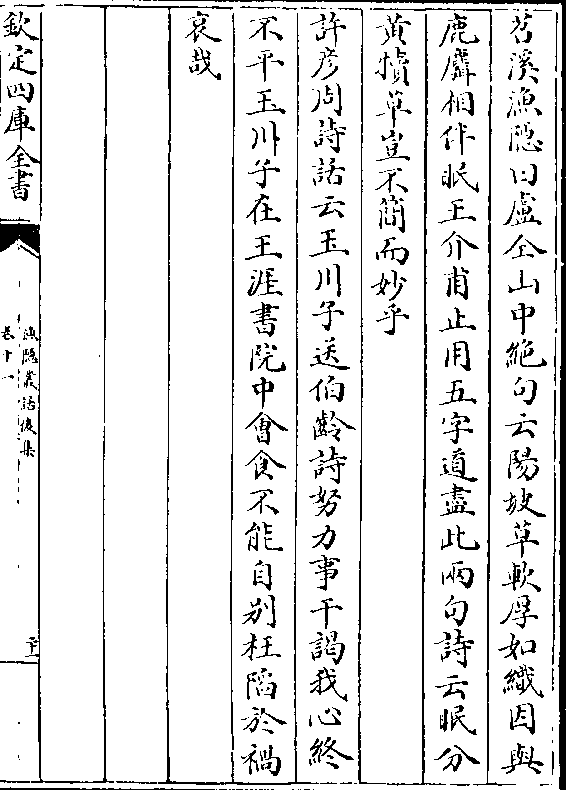 苕溪漁隠曰盧仝山中絶句云陽坡草軟厚如織因與
鹿麛相伴眠王介甫止用五字道盡此兩句詩云眠分
黄犢草豈不簡而妙乎
許彦周詩話云玉川子送伯齡詩努力事干謁我心終
不平玉川子在王涯書院中會食不能自别枉陷於禍
哀哉
欽定四庫全書
漁隠叢話後集
卷十一